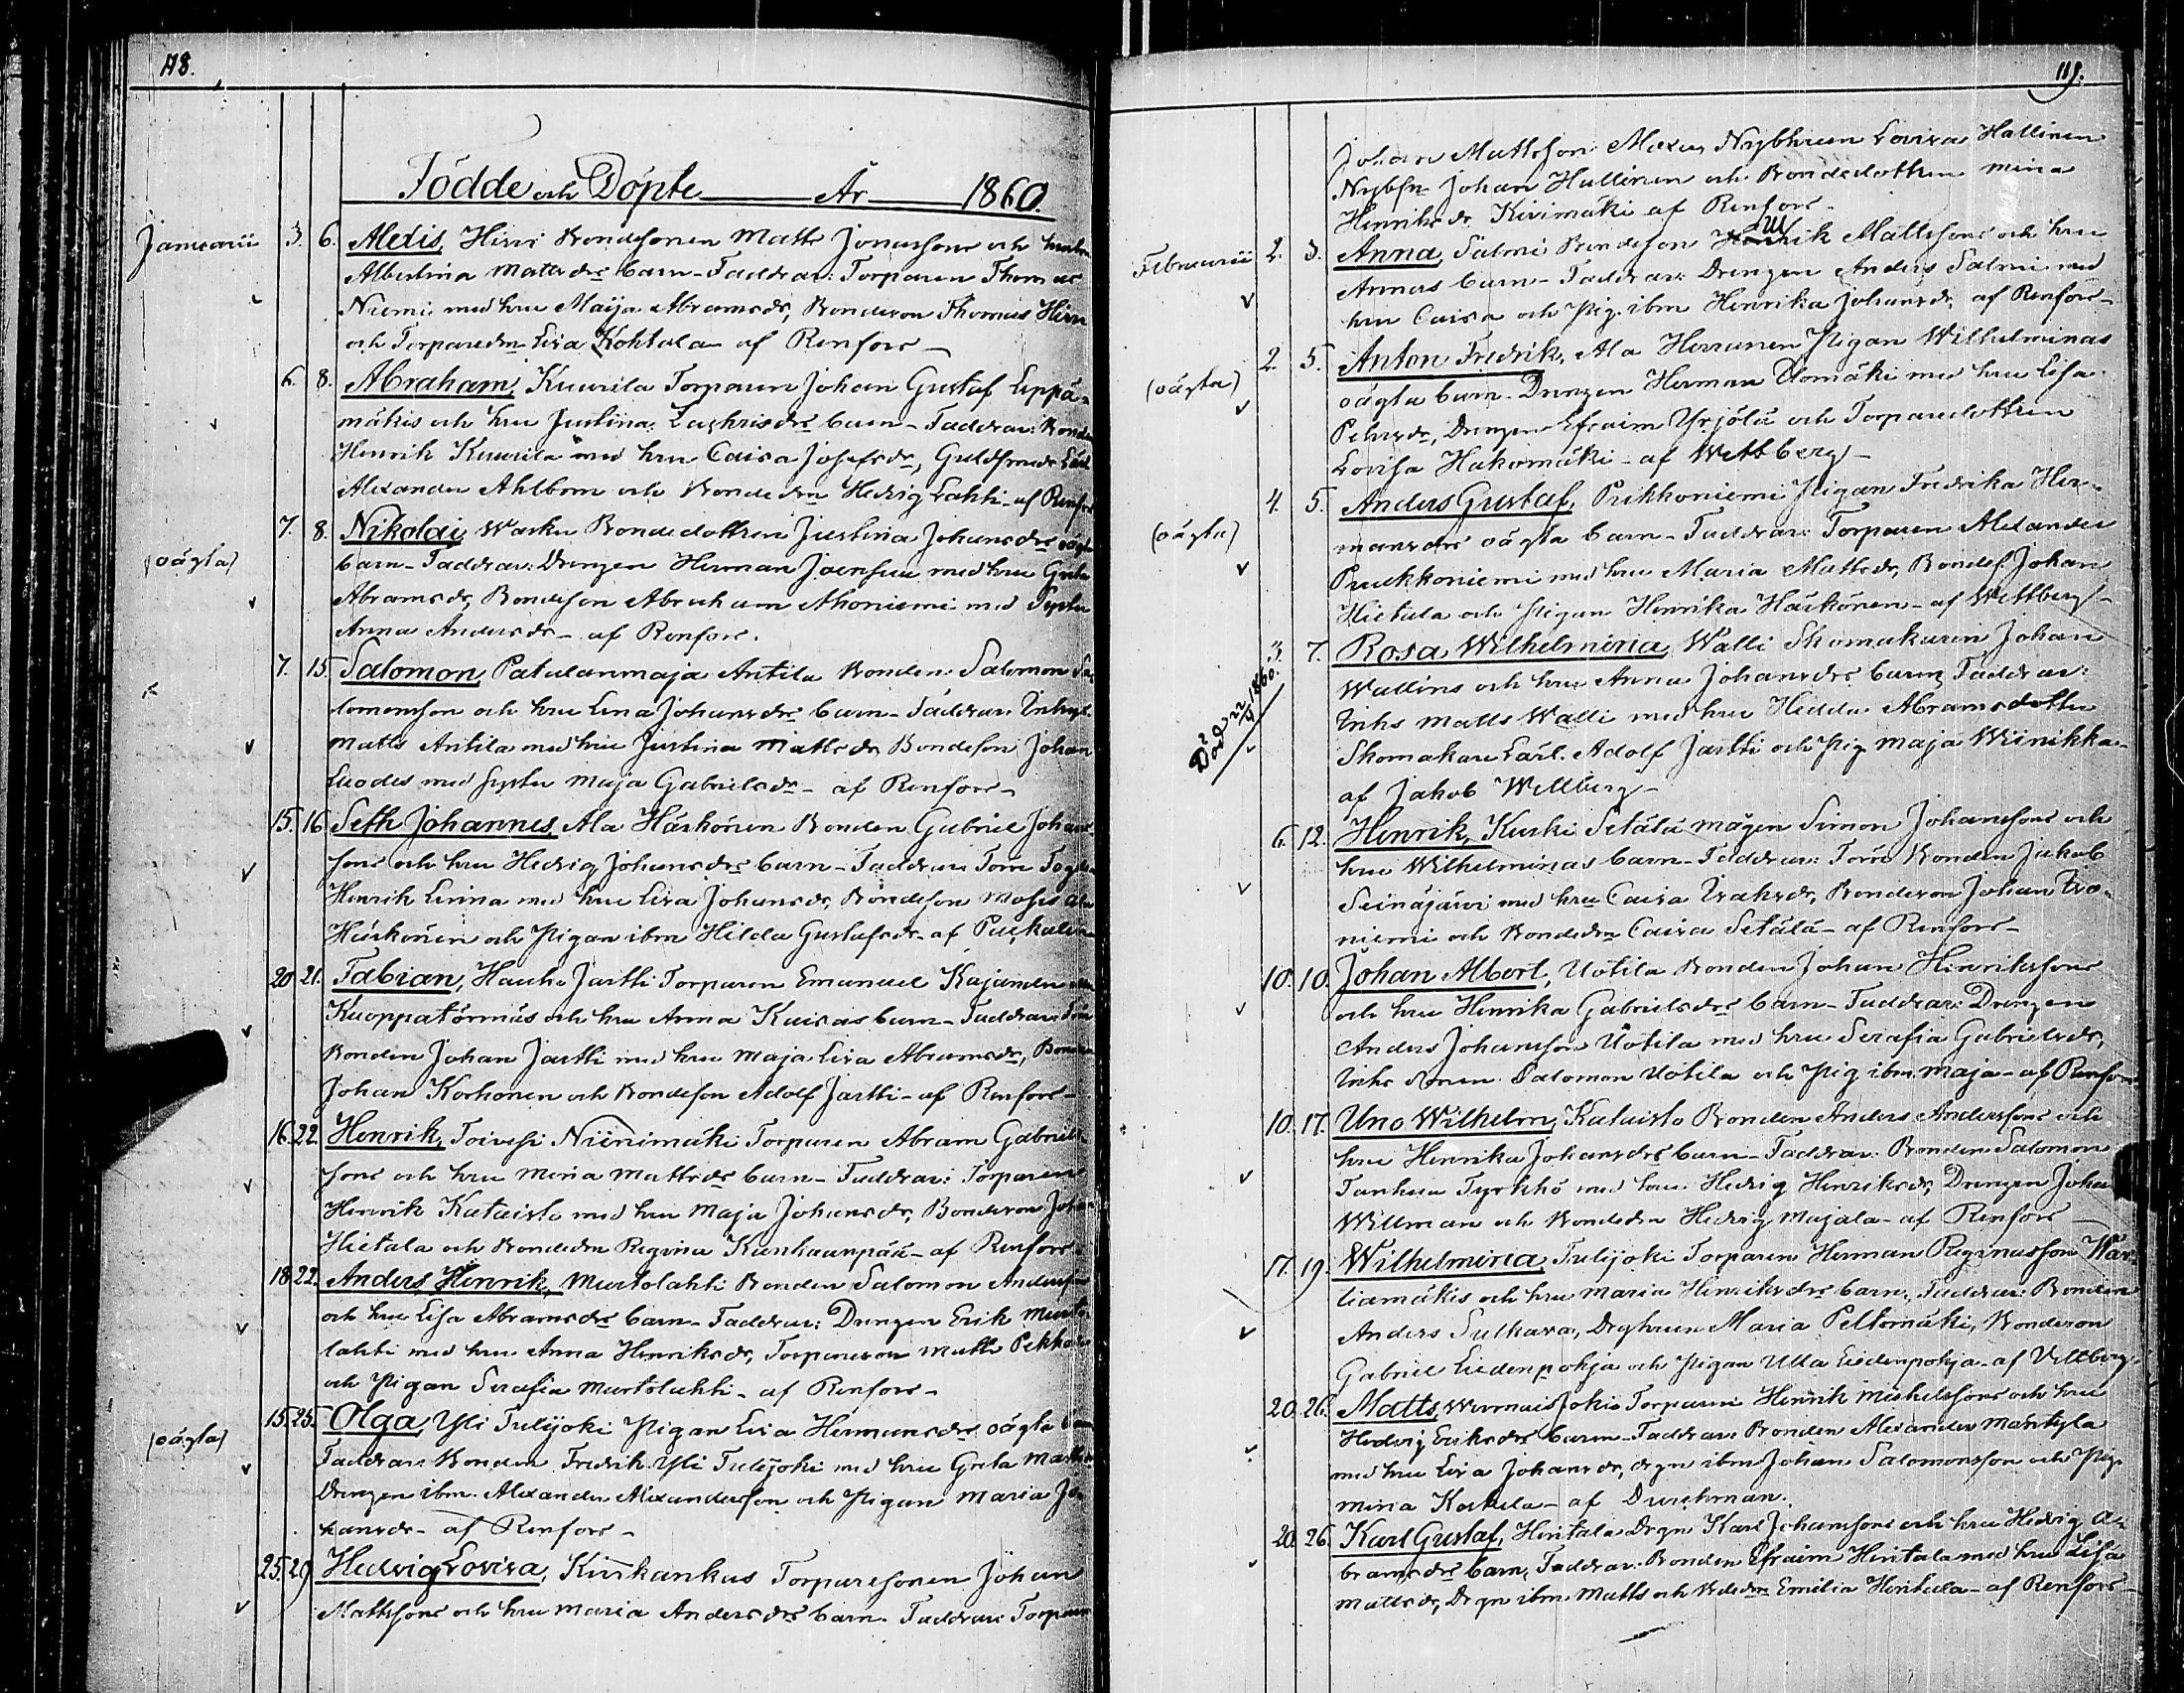 118.
Födde och Döpte År 1860.
Januarii 3. 6. Alexis, Hirvi Bondesonen Matts Jonassons och hustru
Albertina Mattsdrs barn - Faddrar: Torparen Thomas
Niemi med hru Maija Abramsdr, Bondeson Thomas Hirvi
och Torparedn Lisa Kohtala af Renfors -
6. 8. Abraham, Kuurila Torparen Johan Gustaf Leppä-
mäkis och hru Justina Zachrisdrs barn - Faddrar: Bonden
Henrik Kuurila med hru Caisa Josefsdr, Guldsmeds
Alexander Ahlbom och Bondedn Hedvig Lahti - af Renfors
(oägta) 7. 8. Nikolai, Bondedottren Justina Johansdrs oägta
barn - Faddrar: Drengen Herman Joensuu med hru Greta
Abramsdr, Bondeson Abraham Ahoniemi med Syster
Anna Andersdr - af Renfors.
7. 15. Salomon, Patulanmaja Antila Bonden Salomon Sa-
lomonsson och hru Lena Johansdrs barn - Faddrar: Inhys.
Matts Antila med hru Justina Mattsdr Bondeson Johan
Luodes med syster Maja Gabrielsdr - af Renfors -
15. 16. Seth Johannes, Ala Härkönen Bonden Gabriel Johans-
sons och hru Hedvig Johansdrs barn - Faddrar:
Henrik med hru Lisa Johansdr, Bondeson Moses Ala
Härkönen och Pigan ibm Hilda Gustafsdr af
20. 21. Fabian, Hauho Jartti Torparen Emanuel Kajander
Kuoppatörmäs och hru Anna Kaisas barn - Faddrar:
Bonden Johan Jartti med hru Maja Lisa Abramsdr, Bonden
Johan Korhonen och Bondeson Adolf Jartti - af Renfors -
16. 22. Henrik, Toivesi Niinimäki Torparen Abram Gabriels-
sons och hru Mina Mattsdrs barn - Faddrar: Torparen
Henrik Kataisto med hru Maja Johansdr, Bondeson Johan
Hietala och Bondedn Regina Kankaanpää - af Renfors
18. 22. Anders Henrik, Murtolahti Bonden Salomon Anders-
och hru Lisa Abramsdrs barn - Faddrar: Drengen Erik Murto-
lahti med hru Anna Henriksdr, Torpareson Matts
och Pigan Serafia Murtolahti - af Renfors -
(oägta) 15. 25. Olga, Yli Tulijoki Pigan Lisa Hermansdrs oägta barn
Faddrar: Bonden Fredrik Yli Tulijoki med hru Greta
Drengen ibm. Alexander Alexandersson och Pigan Maria Jo-
hansdr - af Renfors -
25. 29. Hedvig Lovisa, Kivikankas Torparesonen Johan
Mattssons och hru Maria Andersdrs barn. Faddrar: Torparen
119.
Johan Mattsson Nybhrun Lovisa Hallinen
Nybsn Johan Hallinen och Bondedottren Mina
Henriksdr Kivimäki af Renfors -
Februarii 2. 3. Anna, Salmi Bondeson Mattssons och hru
Annas barn - Faddrar: Drengen Anders Salmi med
hru Caisa och Pig. ibm Henrika Johansdr, af Renfors -
(oägta) 2. 5. Anton Fredrik, Ala Herranen Pigan Wilhelminas
oägta barn. Drengen Herman Ulomäki med hru Lisa
Petersdr, Drengen Efraim Yrjölä och Torparedottren
Lovisa Hakomäki - af Wettberg -
(oägta) 4. 5. Anders Gustaf, Prikkoniemi Pigan Fredrika Her-
mansdrs oägta barn - Faddrar: Torparen Alexander
Prukkoniemi med hru Maria Mattsdr, Bondes Johan
Hietala och Pigan Henrika Härkönen - af Wettberg -
Död 22/4 1860. 3. 7. Rosa Wilhelmina, Walli Skomakaren Johan
Wallins och hru Anna Johansdrs barn, Faddrar:
Inhs Matts Walli med hru Hedda Abramsdotter
Skomakare Lärl. Adolf Jartti och Pig Maja Wiinikka
af Jakob Wettberg -
6. 12. Henrik, Kurki Setälä mågen Simon Johanssons och
hru Wilhelminas barn - Faddrar: Bonden Jakob
Seinäjärvi med hru Caisa Isaksdr, Bondeson Johan Iso-
niemi och Bondedn Caisa Setälä - af Renfors -
10. 10. Johan Albert, Uotila Bonden Johan Henrikssons
och hru Henrika Gabrielsdrs barn - Faddrar: Drengen
Anders Johansson Uotila med hru Serafia Gabrielsdr,
Inhs Sonen Salomon Uotila och Pig ibm Maja - af Renfors
10. 17. Uno Wilhelm, Kataisto Bonden Anders Anderssons och
hru Henrika Johansdrs barn - Faddrar: Bonden Salomon
Tanhua Tyrkkö med hru Hedvig Henriksdr, Drengen Johan
Willman och Bondedn Hedvig Majala - af Renfors -
17. 19. Wilhelmina, Tulijoki Torparen Herman Reginasson
liamäkis och hru Maria Henriksdrs barn, Faddrar: Bonden
Anders Sulkava, Drghrun Maria Peltomäki, Bondeson
Gabriel Liedenpohja och Pigan Ulla Liedenpohja - af Vettberg
20. 26. Matts, Torparen Henrik Mickelssons och hru
Hedvig Eriksdrs barn - Faddrar: Bonden Alexander Mäntylä
med hru Lisa Johansdr, drgn ibm Johan Salomonsson och Pig.
Mina Koskela - af Durchman.
20. 26. Karl Gustaf, Hintala Drgn Karl Johanssons och hru Hedvig A-
bramsdrs barn, Faddrar: Bonden Efraim Hintala med hru Lisa
Mattsdr, Drgn ibm. Matts och Bdedn Emilia Hintala - af Renfors -